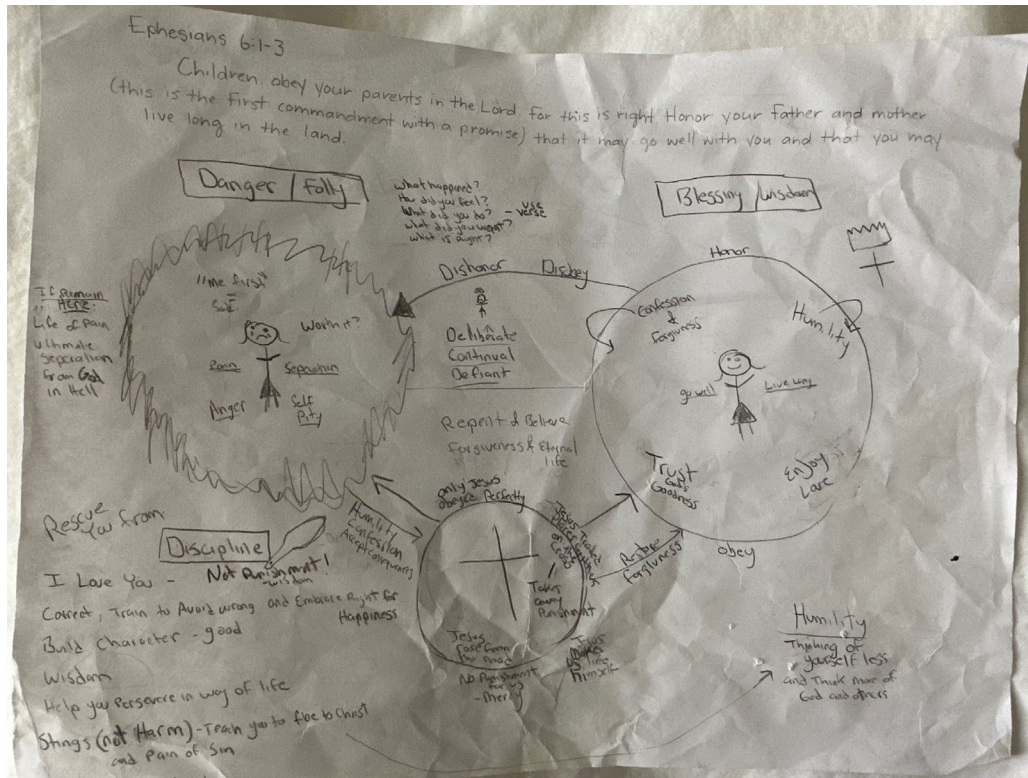 Ephesians 6:1-3
Children, obey your parents in the Lord, for this is right Honor your father and mother
(this is the first commandment with a promise) that it may go well with you and that you may
live long in the land.
Danger / Folly
what happened?
How did you feel?
What did you do? - use verse
what did you want?
what is right?
Blessing / wisdom
If Remain
Here:
Life of Pain
ultimate
Separation
from God
in Hell
"me first"
Self
Worth it?
Pain
Separation
Anger
Self
Pity
Dishonor Disobey
Deliberate
Continual
Defiant
Repent & Believe
Forgiveness & Eternal
life
Honor
Confession
&
Forgivness
Humility
go well
Live Long
Trust
God's
Goodness
Enjoy
Love
obey
only Jesus
obeyed Perfectly
Humility
Confession
Accept consequences
Jesus Traded
Places
on the
Cross
Takes
away
Punishment
Jesus
rose from
the Dead
No Punishment
for us
- Mercy
Jesus
makes
us like
Himself
Restore
Forgivness
Rescue
you from
Discipline
Not Punishment!
- wisdom
I Love You -
Correct, Train to Avoid wrong and Embrace Right for
Happiness
Build Character - good
Wisdom
Help you Persevere in way of life
Stings (not Harm) - Teach you to flee to Christ
and Pain of Sin
Humility
Thinking of
yourself less
and Think more of
God and others